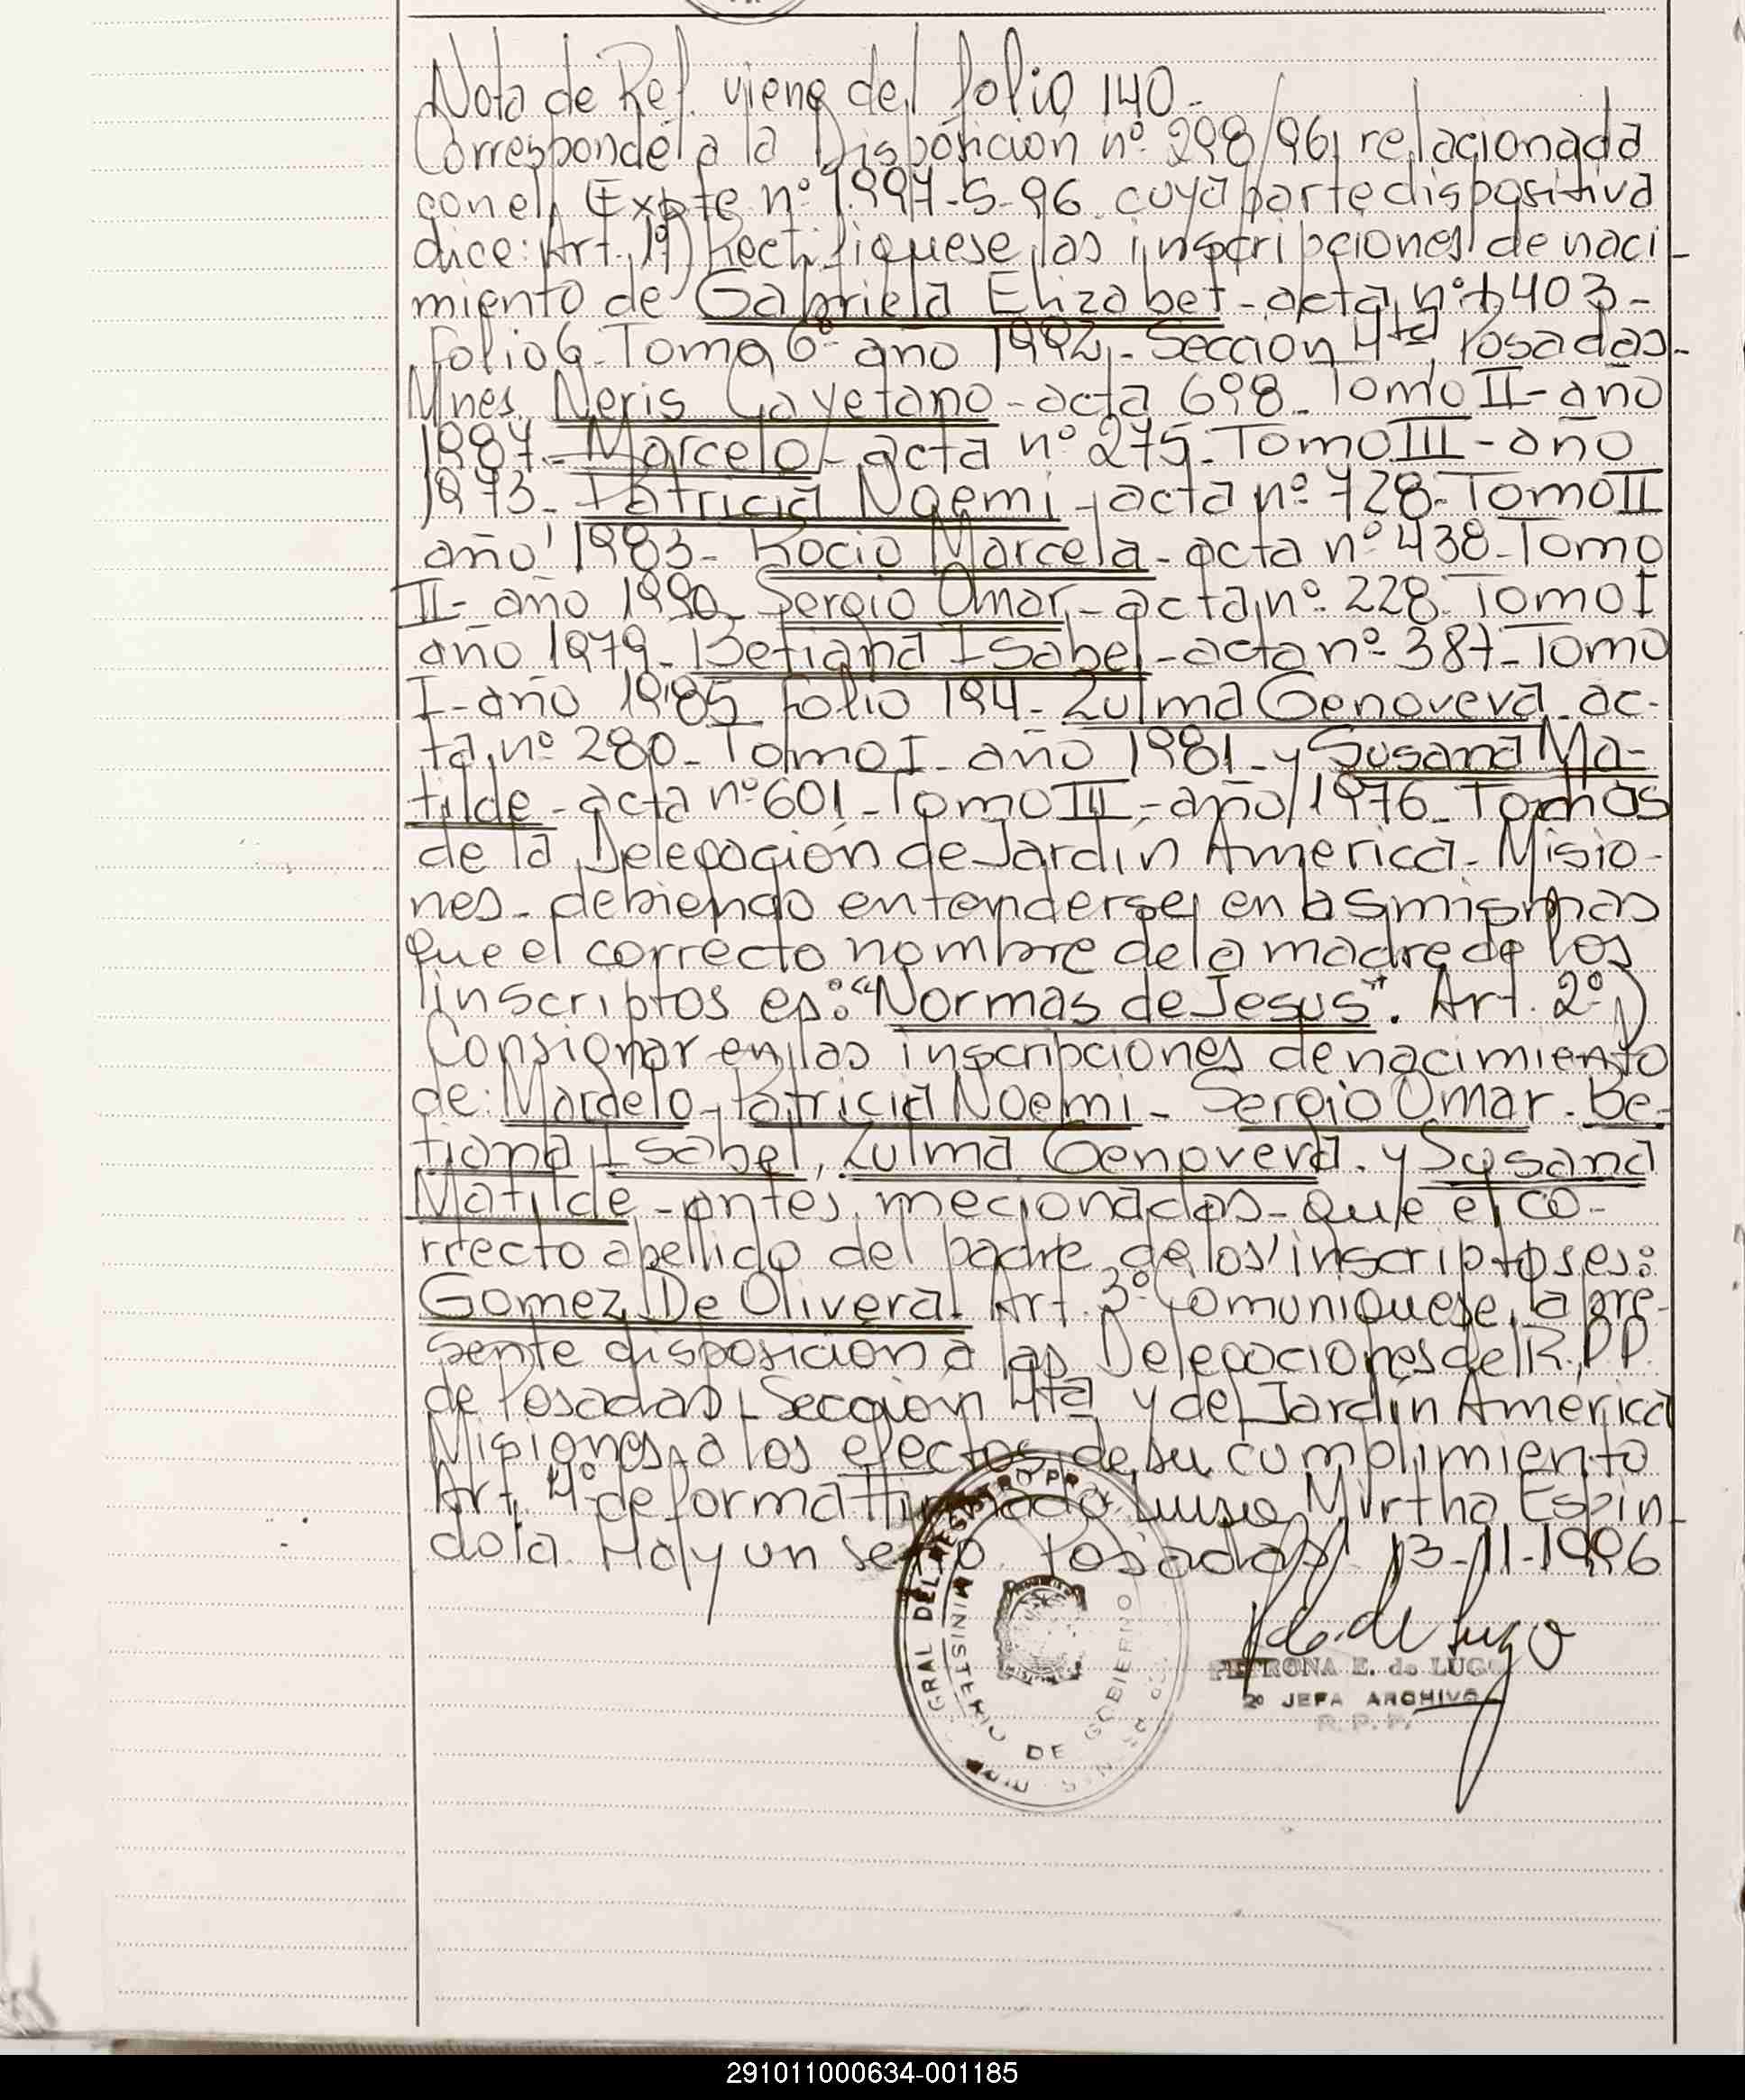 Nota de Ref. viene del folio 140-
Corresponde a la Disposición nº 298/96, relacionada
con el Expte nº 1.997-S-96. cuya parte dispositiva
dice: Art. 1º) Rectifiquese las inscripciones de naci-
miento de Gabriela Elizabet - acta nº 1403-
Folio 6 - Tomo 6º año 1992, - Seccion 4ta Posadas-
Mnes. Neris Cayetano - acta 698 - Tomo II - año
1987 - Marcelo - acta nº 275 - Tomo III - año
1973 - Patricia Noemi - acta nº 728 - Tomo II
año 1983 - Rocio Marcela - acta nº 438 - Tomo
II - año 1990 - Sergio Omar - acta nº 228 - Tomo I
año 1979 - Betiana Isabel - acta nº 387 - Tomo
I - año 1985 folio 194 - Zulma Genoveva ac-
ta nº 280 - Tomo I - año 1981 - y Susana Ma-
tilde - acta nº 601 - Tomo III - año 1976 - Todas
de la Delegación de Jardín America - Misio-
nes - debiendo entenderse en las mismas
que el correcto nombre de la madre de los
inscriptos es: "Normas de Jesus". Art. 2º)
Consignar en las inscripciones de nacimiento
de: Marcelo, Patricia Noemi - Sergio Omar - Be-
tiana Isabel, Zulma Genoveva. y Susana
Matilde - antes mecionadas - que el co-
rrecto apellido del padre de los inscriptos es:
Gomez De Olivera. Art. 3º Comuniquese la pre-
sente disposición a las Delegaciones del R.P.P.
de Posadas - Sección 4ta y de Jardín América
Misiones, a los efectos de su cumplimiento
Art. 4º de forma Firmado Luisa Mirtha Espin-
dola. Hay un sello. Posadas, 13-11-1996
GRAL DEL REGISTRO PR
MINISTERIO DE GOBIERNO
PETRONA E. de LUGO
2º JEFA ARCHIVO
R. P. P.
291011000634-001185